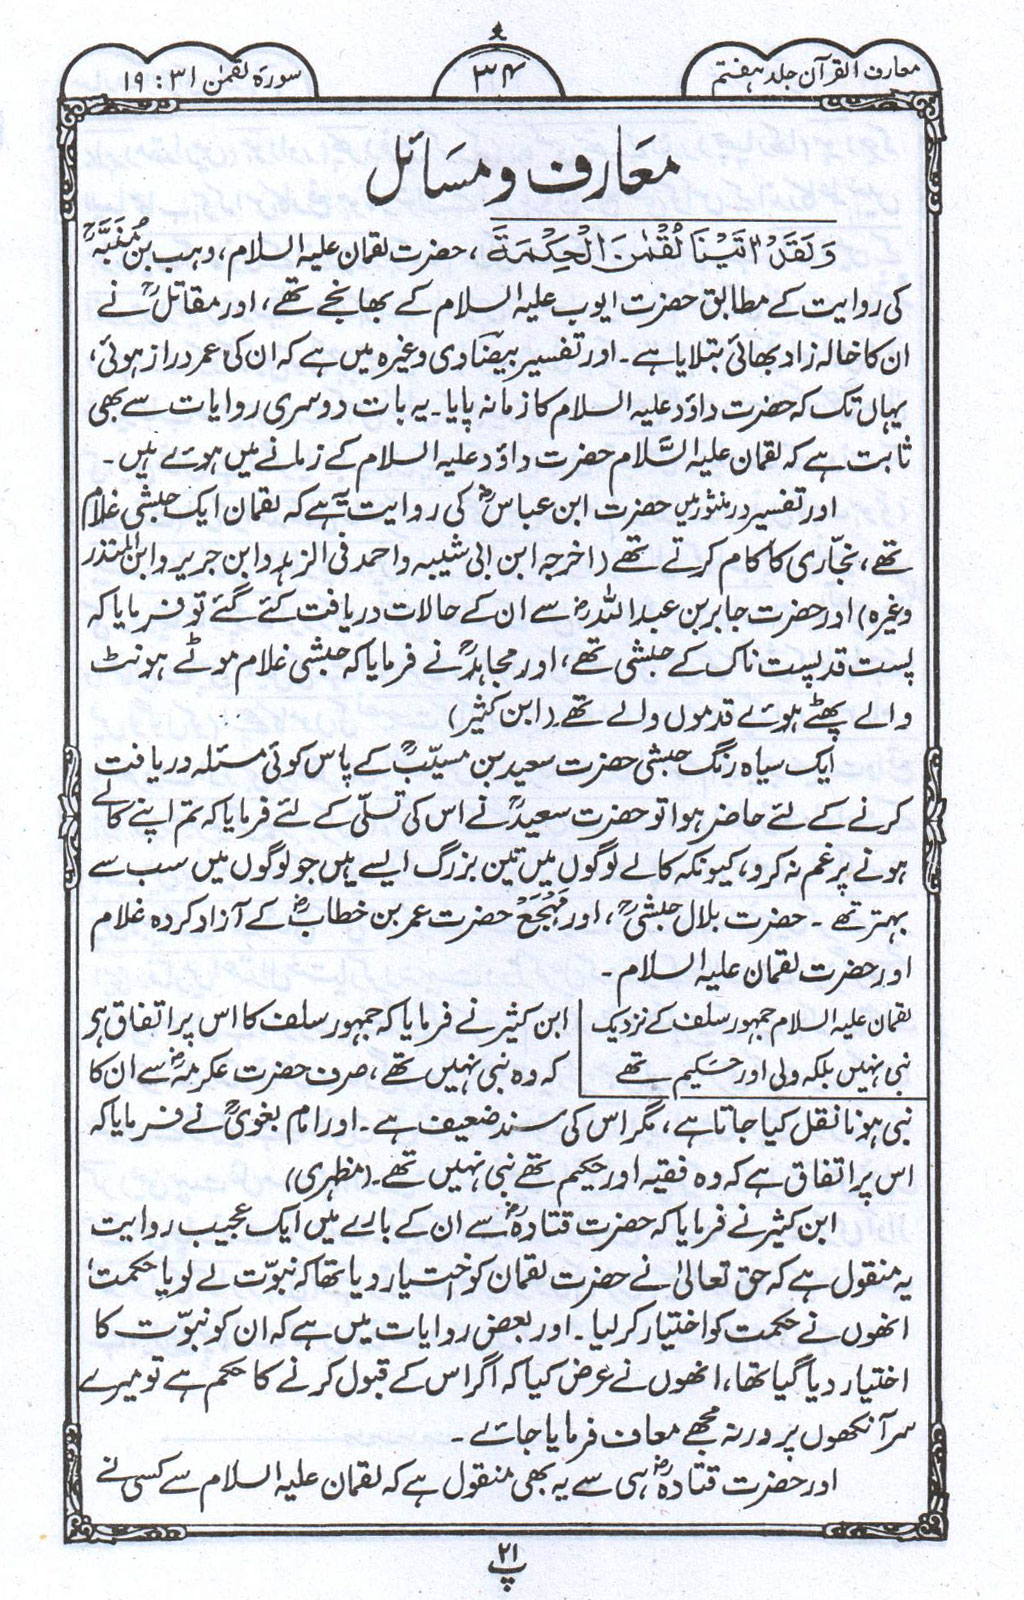 معارف القرآن جلد ہفتم
۳۴
سورۃ لقمٰن ۳۱ : ۱۹
معارف و مسائل
وَلَقَدْ اٰتَيْنَا لُقْمٰنَ الْحِكْمَةَ ، حضرت لقمان علیہ السلام، وہب بن مُنَبِّہؒ
کی روایت کے مطابق حضرت ایوب علیہ السلام کے بھانجے تھے، اور مقاتلؒ نے
ان کا خالہ زاد بھائی بتلایا ہے ۔ اور تفسیر بیضاوی وغیرہ میں ہے کہ ان کی عمر دراز ہوئی،
یہاں تک کہ حضرت داؤد علیہ السلام کا زمانہ پایا۔ یہ بات دوسری روایات سے بھی
ثابت ہے کہ لقمان علیہ السَّلام حضرت داؤد علیہ السلام کے زمانے میں ہوئے ہیں ۔
اور تفسیر درمنثور میں حضرت ابن عباسؓ کی روایت یہ ہے کہ لقمان ایک حبشی غلام
تھے، نجّاری کا کام کرتے تھے (اخرجہ ابن ابی شیبہ و احمد فی الزہد وابن جریر وابن المنذر
وغیرہ) اور حضرت جابر بن عبداللہؓ سے ان کے حالات دریافت کئے گئے تو فرمایا کہ
پست قد پست ناک کے حبشی تھے، اور مجاہدؒ نے فرمایا کہ حبشی غلام موٹے ہونٹ
والے پھٹے ہوئے قدموں والے تھے۔ (ابن کثیر)
ایک سیاہ رنگ حبشی حضرت سعید بن مسیّبؒ کے پاس کوئی مسئلہ دریافت
کرنے کے لئے حاضر ہوا تو حضرت سعیدؒ نے اس کی تسلّی کے لئے فرمایا کہ تم اپنے کالے
ہونے پر غم نہ کرو، کیونکہ کالے لوگوں میں تین بزرگ ایسے ہیں جو لوگوں میں سب سے
بہتر تھے ۔ حضرت بلال حبشیؓ، اور مَہْجَعْ حضرت عمر بن خطابؓ کے آزاد کردہ غلام
اور حضرت لقمان علیہ السلام ۔
لقمان علیہ السلام جمہور سلف کے نزدیک
نبی نہیں بلکہ ولی اور حکیم تھے
ابن کثیر نے فرمایا کہ جمہور سلف کا اس پر اتفاق ہی
کہ وہ نبی نہیں تھے، صرف حضرت عکرمہؓ سے ان کا
نبی ہونا نقل کیا جاتا ہے، مگر اس کی سند ضعیف ہے ۔ اور امام بغویؒ نے فرمایا کہ
اس پر اتفاق ہے کہ وہ فقیہ اور حکیم تھے نبی نہیں تھے۔ (مظہری)
ابن کثیر نے فرمایا کہ حضرت قتادہؓ سے ان کے بارے میں ایک عجیب روایت
یہ منقول ہے کہ حق تعالیٰ نے حضرت لقمان کو اختیار دیا تھا کہ نبوّت لے لو یا حکمت،
انھوں نے حکمت کو اختیار کر لیا ۔ اور بعض روایات میں ہے کہ ان کو نبوّت کا
اختیار دیا گیا تھا، انھوں نے عرض کیا کہ اگر اس کے قبول کرنے کا حکم ہے تو میرے
سر آنکھوں پر ورنہ مجھے معاف فرمایا جائے ۔
اور حضرت قتادہؓ ہی سے یہ بھی منقول ہے کہ لقمان علیہ السلام سے کسی نے
۲۱
پ